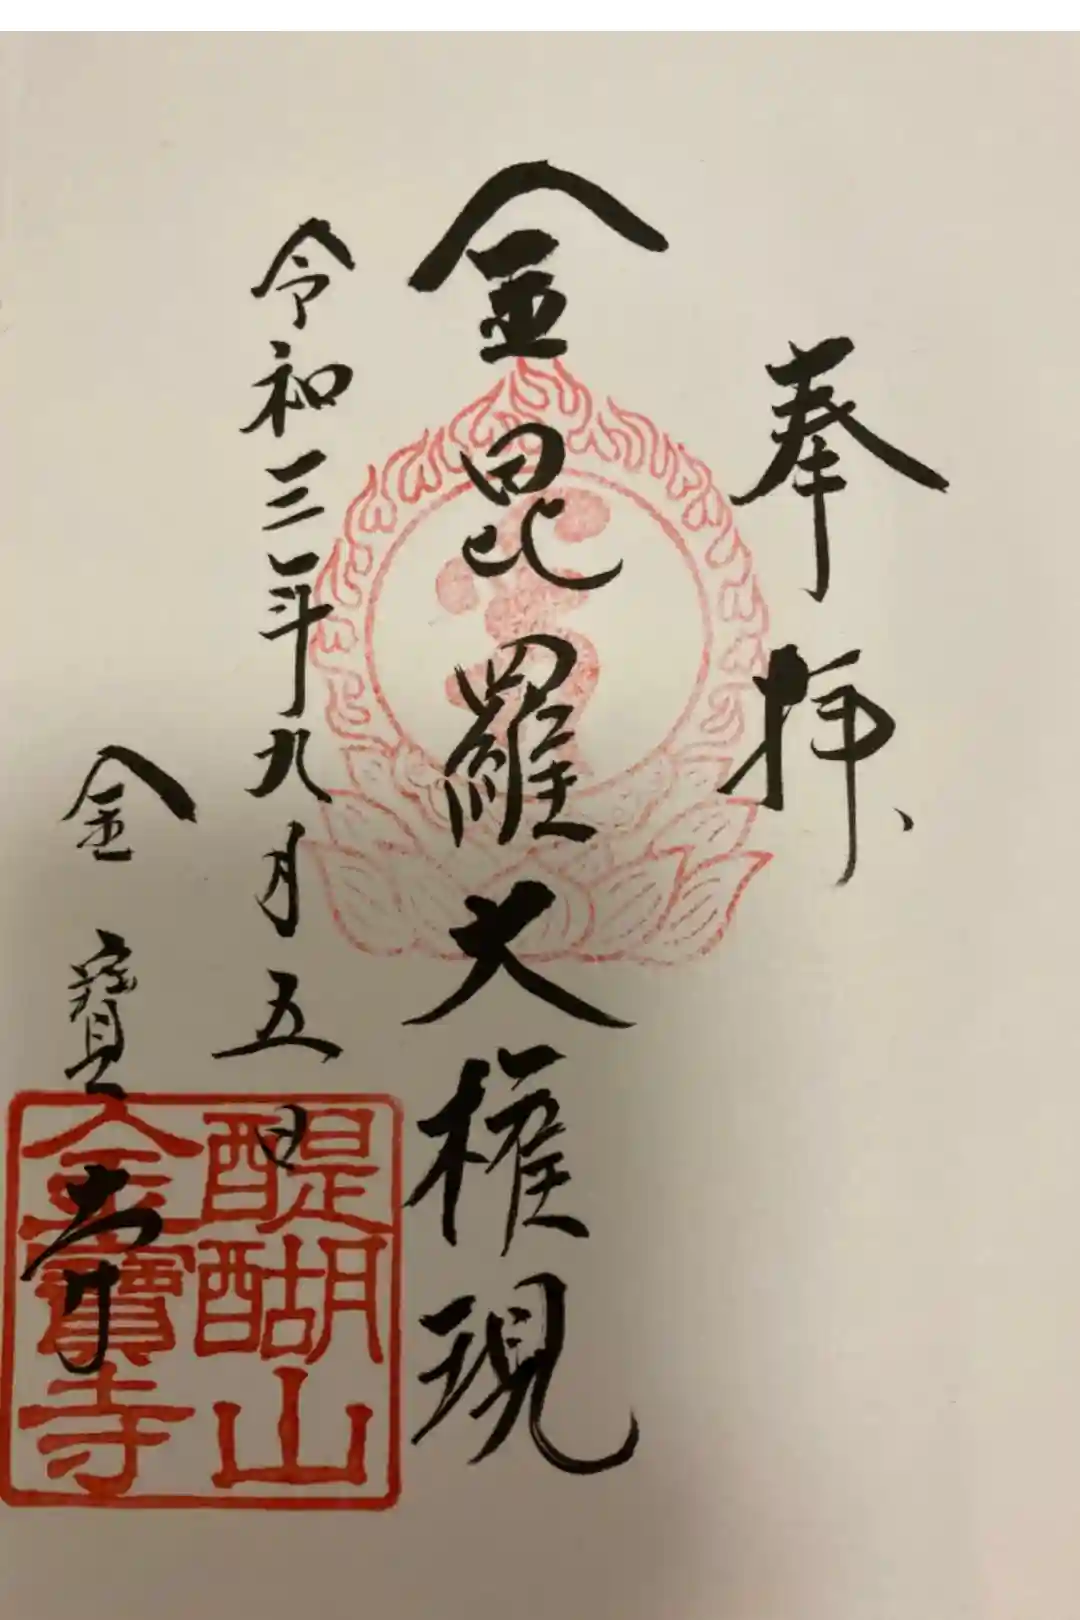 奉拝
金毘羅大権現
令和三年九月五日
金寶寺
醍醐山
金寶寺